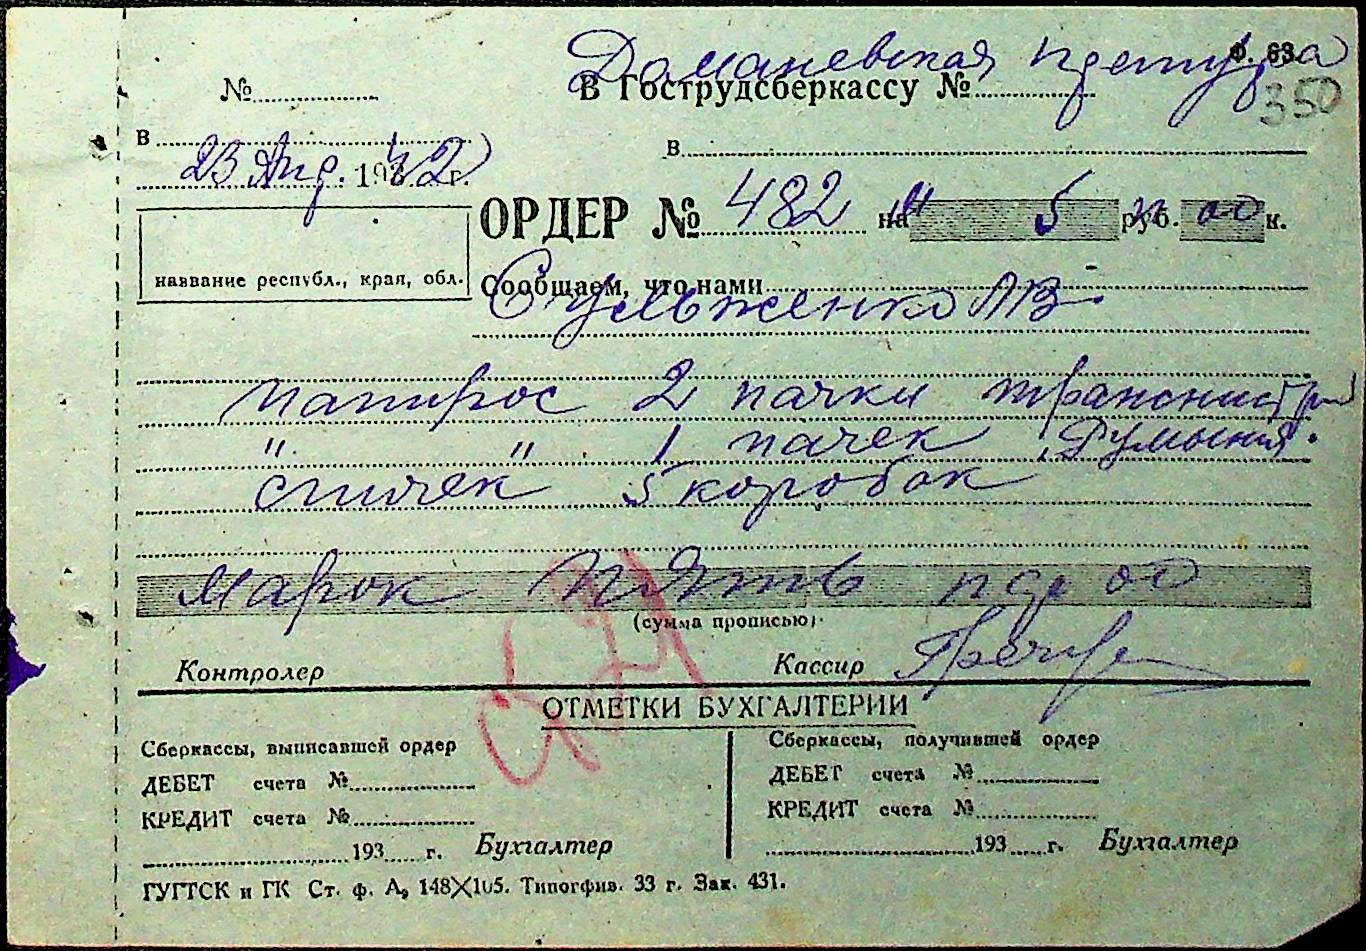 Доманевская претура
Ф. 63
350
№
В Гострудсберкассу №
в
в
23 Апр. 1942 г.
ОРДЕР № 482 на 5 руб. 00 к.
название республ., края, обл.
Сообщаем, что нами
Сульженко АВ.
папирос 2 пачки транснистри
" " 1 пачек Румыния.
спичек 5 коробок
марок пять пф 00
(сумма прописью)
Контролер
Кассир
ОТМЕТКИ БУХГАЛТЕРИИ
Сберкассы, выписавшей ордер
ДЕБЕТ счета №
КРЕДИТ счета №
193 г. Бухгалтер
Сберкассы, получившей ордер
ДЕБЕТ счета №
КРЕДИТ счета №
193 г. Бухгалтер
ГУГТСК и ГК Ст. ф. А, 148X105. Типогфив. 33 г. Зак. 431.